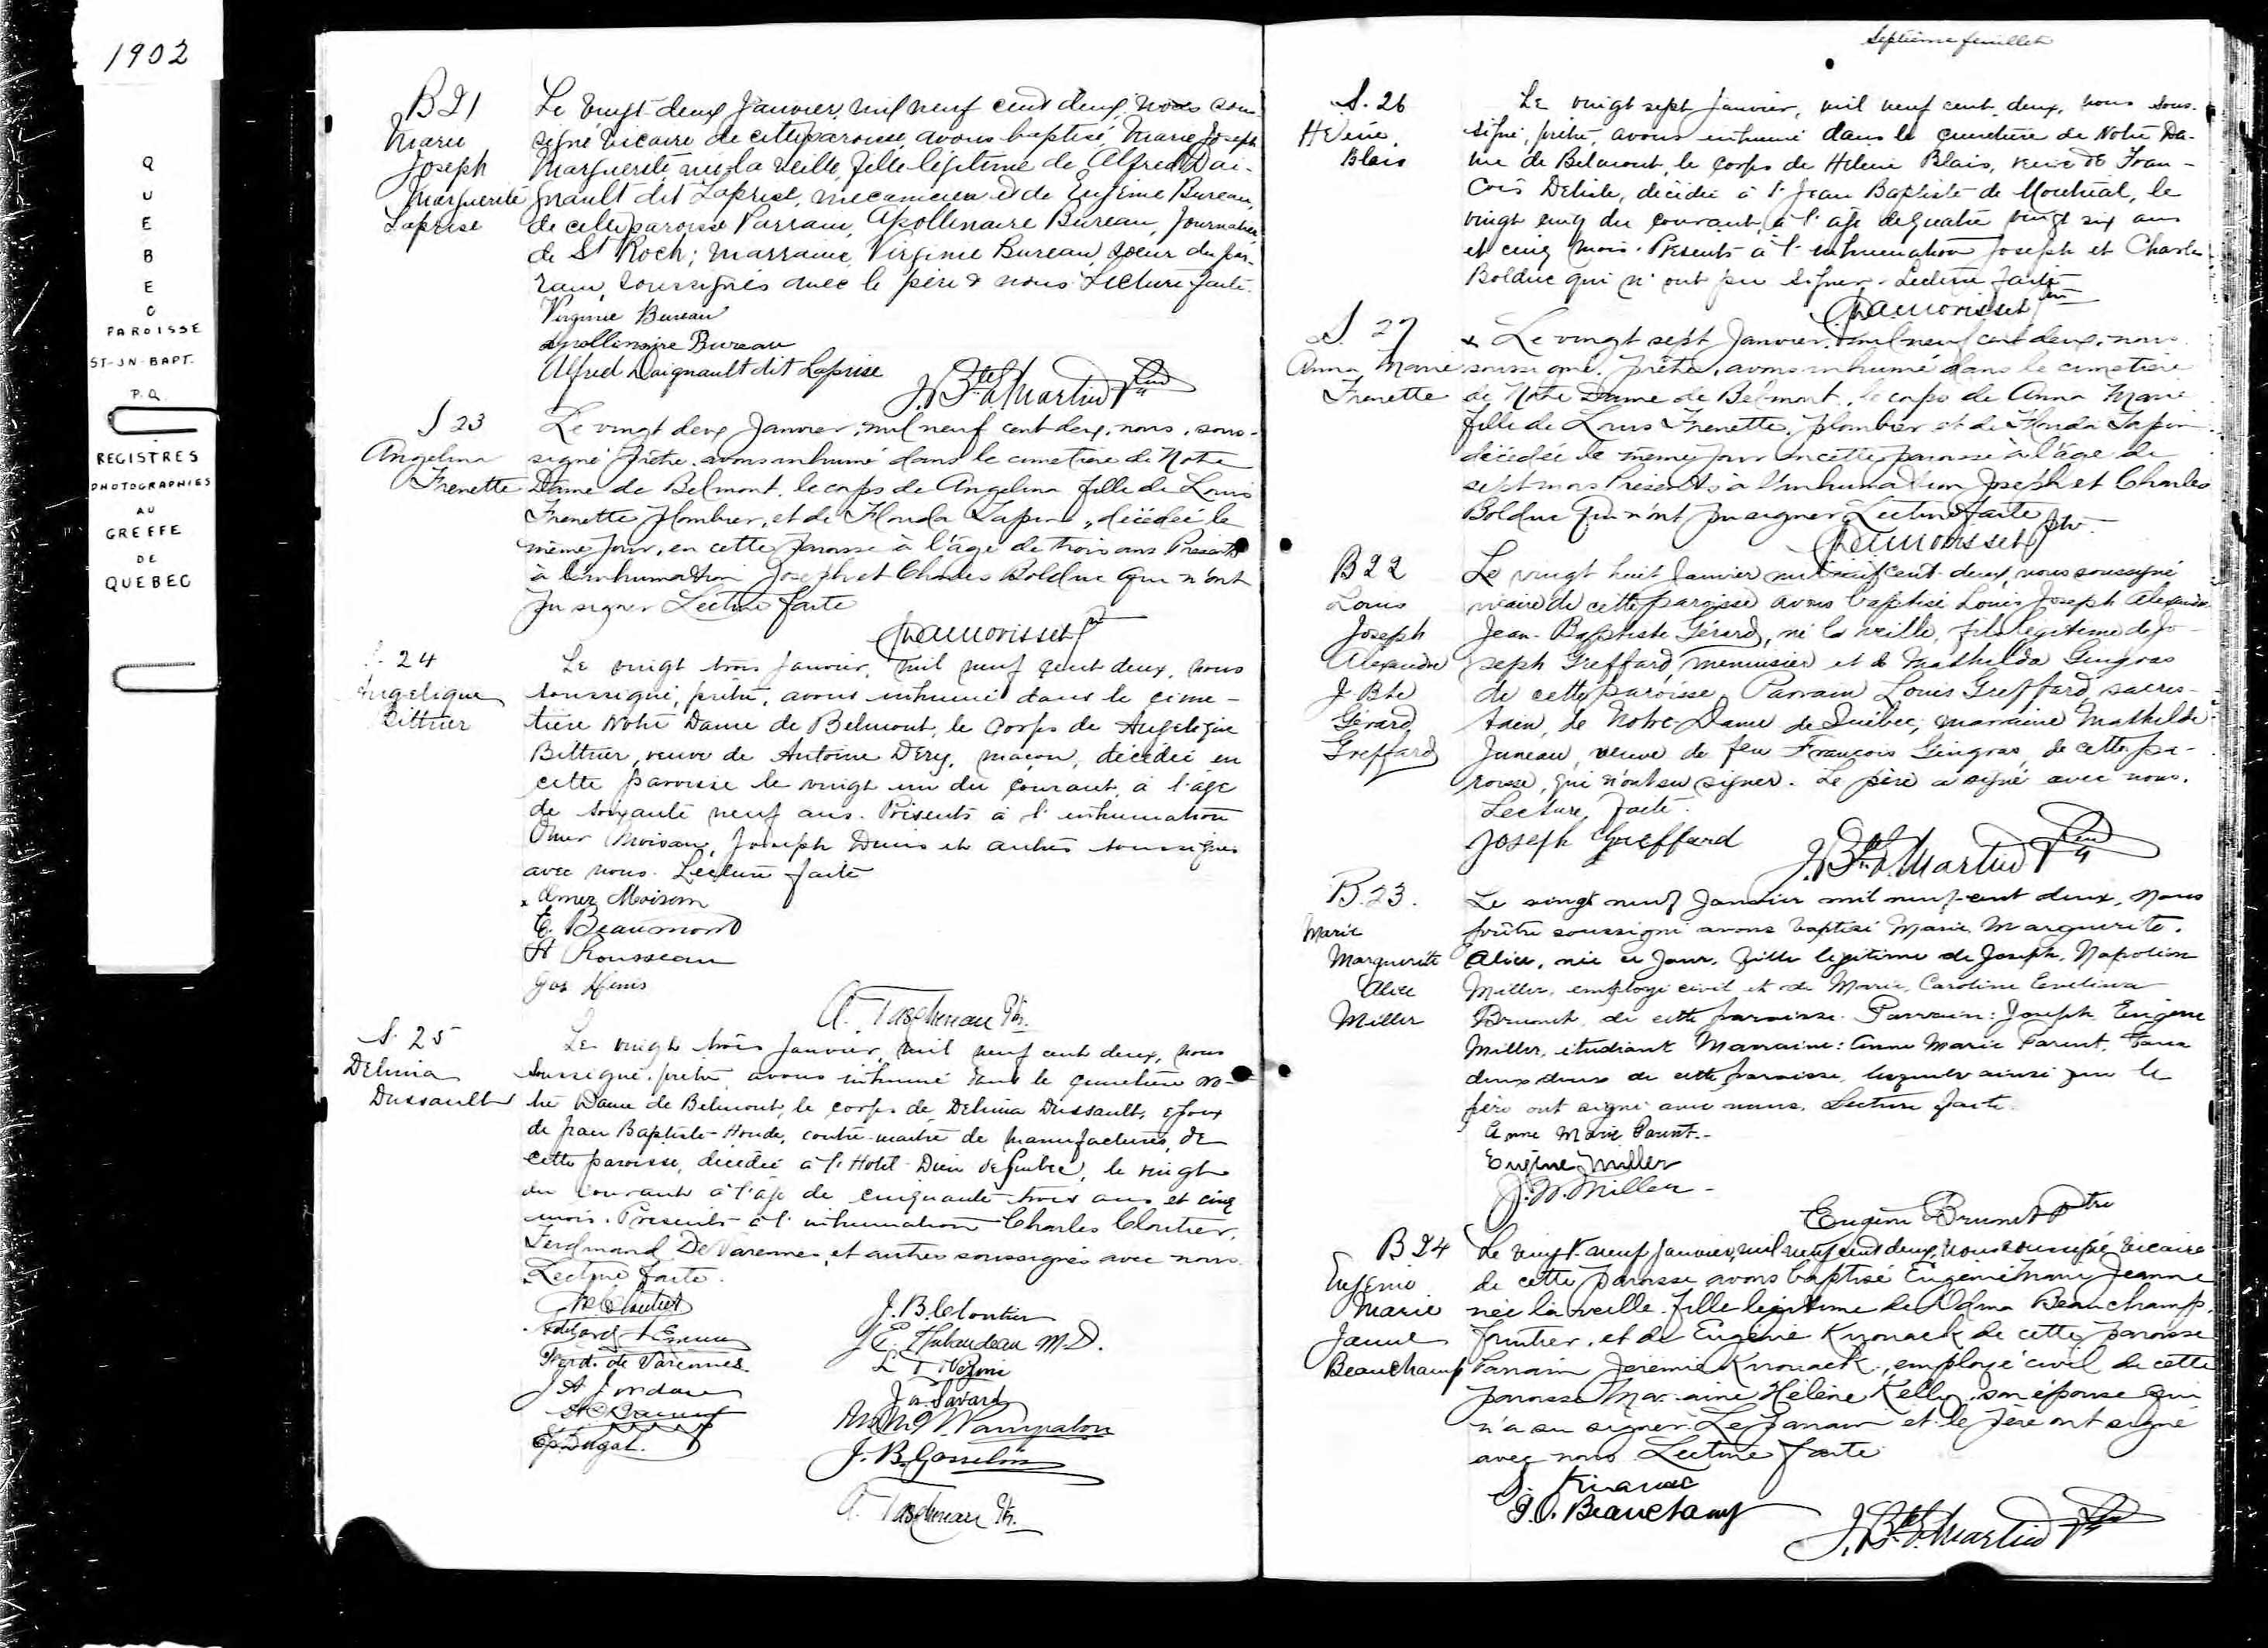 1902
QUEBEC
PAROISSE
ST-JN-BAPT.
P.Q.
REGISTRES
PHOTOGRAPHIES
AU
GREFFE
DE
QUEBEC
B 21
Marie
Joseph
Marguerite
Laprise
Le vingt-deux Janvier, mil neuf cent deux, nous sous-
signé vicaire de cette paroisse, avons baptisé Marie Joseph
Marguerite née la veille, fille légitime de Alfred Dai-
gnault dit Laprise, mécanicien et de Eugénie Bureau,
de cette paroisse Parrain, Apollinaire Bureau, Journalier
de St Roch; marraine, Virginie Bureau, soeur du par-
rain, soussignés avec le père & nous. Lecture faite.
Virginie Bureau
Apollinaire Bureau
Alfred Daignault dit Laprise
J. Bte L. Martin
S 23
Angelina
Frenette
Le vingt deux Janvier, mil neuf cent deux, nous, sous-
signé prêtre, avons inhumé dans le cimetière de Notre
Dame de Belmont, le corps de Angelina fille de Louis
Frenette plombier, et de Florida Lapin, décédée le
même jour, en cette paroisse à l'âge de trois ans Présents
à l'inhumation Joseph et Charles Bolduc qui n'ont
pu signer Lecture faite
S. 24
Angelique
Bittner
Le vingt trois Janvier, mil neuf cent deux, nous
soussigné, prêtre, avons inhumé dans le cime-
tière Notre Dame de Belmont, le corps de Angelique
Bittner, veuve de Antoine Dery, maçon, décédée en
cette paroisse le vingt un du courant, à l'âge
de soixante neuf ans. Présents à l'inhumation
Omer Moisan, Joseph Denis et autres soussignés
avec nous. Lecture faite
Omer Moisan
E. Beaumont
A Rousseau
Jos Denis
A. Taschereau Ptr.
S. 25
Delima
Dussault
Le vingt trois Janvier, mil neuf cent deux, nous
soussigné, prêtre, avons inhumé dans le cimetière No-
tre Dame de Belmont, le corps de Delima Dussault, epoux
de Jean Baptiste Houde, contre-maître de manufactures, de
cette paroisse, décédée à l'Hotel-Dieu de Québec, le vingt
du courant à l'âge de cinquante trois ans et cinq
mois. Présents à l'inhumation Charles Cloutier,
Ferdinand De Varennes, et autres soussignés avec nous.
Lecture faite.
Ch. Cloutier
Ferd. de Varennes
J A Jordan
Ep. Dugal.
J. B. Cloutier
J. E. Thibaudeau M.D.
Jos. Savard
J. B. Gosselin
A. Taschereau Ptr.
Septième feuillet
S. 26
Helène
Blais
Le vingt sept Janvier, mil neuf cent deux, nous sous-
signé, prêtre, avons inhumé dans le cimetière de Notre Da-
me de Belmont, le corps de Helene Blais, veuve de Fran-
çois Delisle, décédée à St Jean Baptiste de Montréal, le
vingt cinq du courant, à l'age de quatre vingt six ans
et cinq mois. Présents à l'inhumation Joseph et Charles
Bolduc qui n'ont pu signer. Lecture faite
S. 27
Anna Marie
Frenette
Le vingt sept Janvier, mil neuf cent deux, nous
soussigné, prêtre, avons inhumé dans le cimetière
de Notre Dame de Belmont, le corps de Anna Marie
fille de Louis Frenette, plombier et de Florida Lapin
décédée le même jour en cette paroisse à l'âge de
sept mois Présents à l'inhumation Joseph et Charles
Bolduc qui n'ont pu signer Lecture faite
B 22
Louis
Joseph
Alexandre
J. Bte
Gérard
Greffard
Le vingt huit Janvier mil neuf cent deux, nous soussigné
vicaire de cette paroisse avons baptisé Louis Joseph Alexandre
Jean-Baptiste Gérard, né la veille, fils légitime de Jo-
seph Greffard, menuisier et de Mathilda Gingras
de cette paroisse. Parrain Louis Greffard, sacris-
tain, de Notre Dame de Québec; marraine Mathilde
Juneau, veuve de feu François Gingras, de cette pa-
roisse, qui n'ont su signer. Le père a signé avec nous.
Lecture faite.
Joseph Greffard
J. Bte L. Martin
B. 23.
Marie
Marguerite
Alice
Miller
Le vingt neuf Janvier mil neuf cent deux, Nous
prêtre soussigné avons baptisé Marie Marguerite.
Alice, née ce jour, fille légitime de Joseph, Napoléon
Miller, employé civil et de Marie, Caroline Evelina
Brunet, de cette paroisse. Parrain: Joseph, Eugène
Miller, étudiant Marraine: Anne Marie Parent, tous
deux de cette paroisse, lesquels ainsi que le
père ont signé avec nous. Lecture faite.
Anne Marie Parent.
Eugène Miller
J. N. Miller
Eugène Brunet Ptre
B 24
Eugénie
Marie
Jeanne
Beauchamp
Le vingt-neuf Janvier, mil neuf cent deux, nous soussigné vicaire
de cette paroisse avons baptisé Eugénie Marie Jeanne
née la veille, fille légitime de Odma Beauchamp,
peintre, et de Eugénie Kirouack de cette paroisse
Parrain Jérémie Kirouack, employé civil de cette
paroisse Marraine Hélène Kelly, son épouse qui
n'a su signer. Le parrain et le père ont signé
avec nous Lecture faite
J. Kirouac
J. O. Beauchamp
J. Bte L. Martin